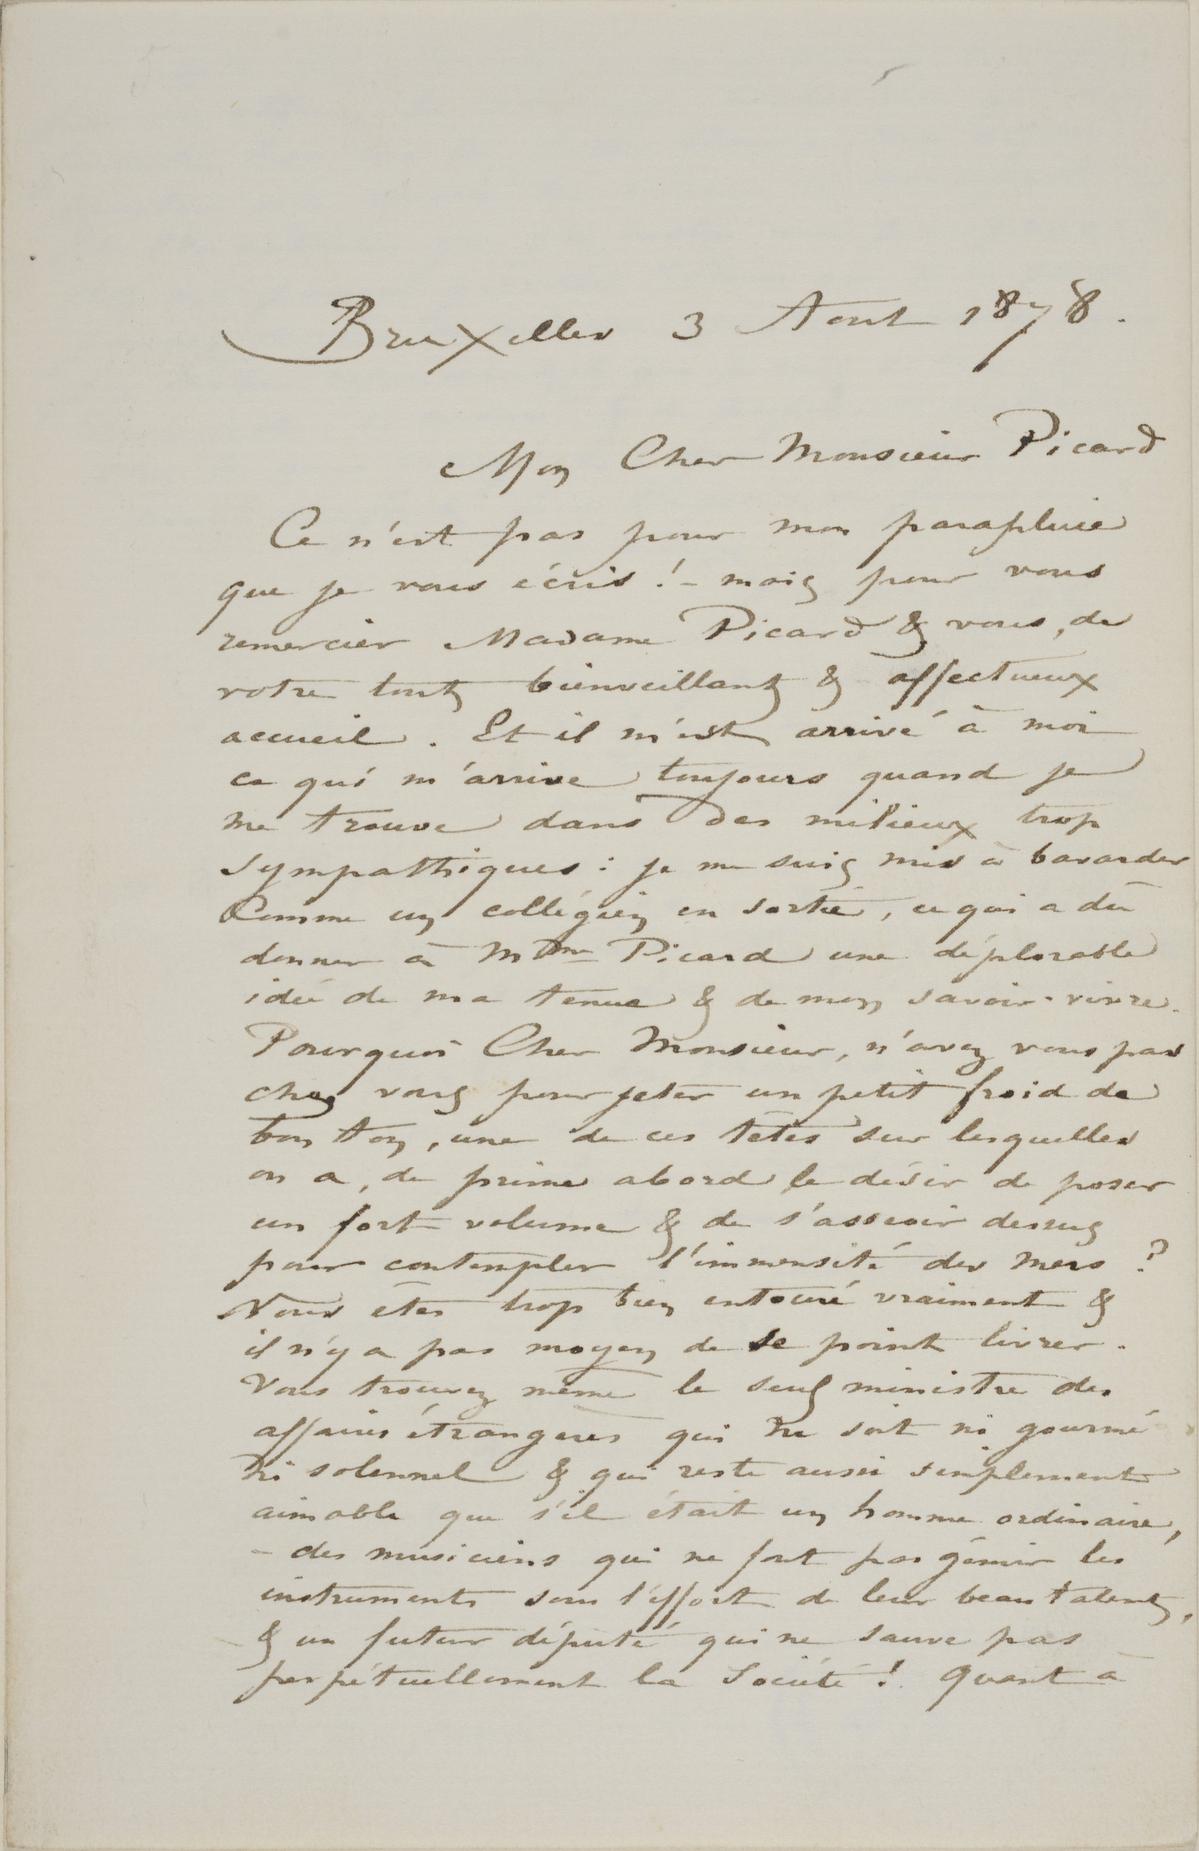 Bruxelles 3 Aout 1878.
Mon Cher Monsieur Picard
Ce n'est pas pour mon parapluie
que je vous écris ! – mais pour vous
remercier Madame Picard & vous, de
votre tout bienveillant & affectueux
accueil. Et il m'est arrivé à moi
ce qui m'arrive toujours quand je
me trouve dans des milieux trop
sympathiques : je me suis mis à bavarder
Comme un collégien en sortie, ce qui a dû
donner à Mme Picard une déplorable
idée de ma tenue & de mon savoir-vivre.
Pourquoi Cher Monsieur, n'avez vous pas
chez vous pour jeter un petit froid de
bon ton, une de ces têtes sur lesquelles
on a, de prime abord le désir de poser
un fort volume & de s'asseoir dessus
pour contempler l'immensité des mers ?
Vous êtes trop bien entouré vraiment &
il n'y a pas moyen de se point livrer.
Vous trouvez même le seul ministre des
affaires étrangeres qui ne soit ni gourmé
ni solennel & qui reste aussi simplement
aimable que s'il était un homme ordinaire,
– des musiciens qui ne font pas gémir les
instruments sous l'effort de leur beau talent,
& un futur député qui ne sauve pas
perpétuellement la Société ! Quant à